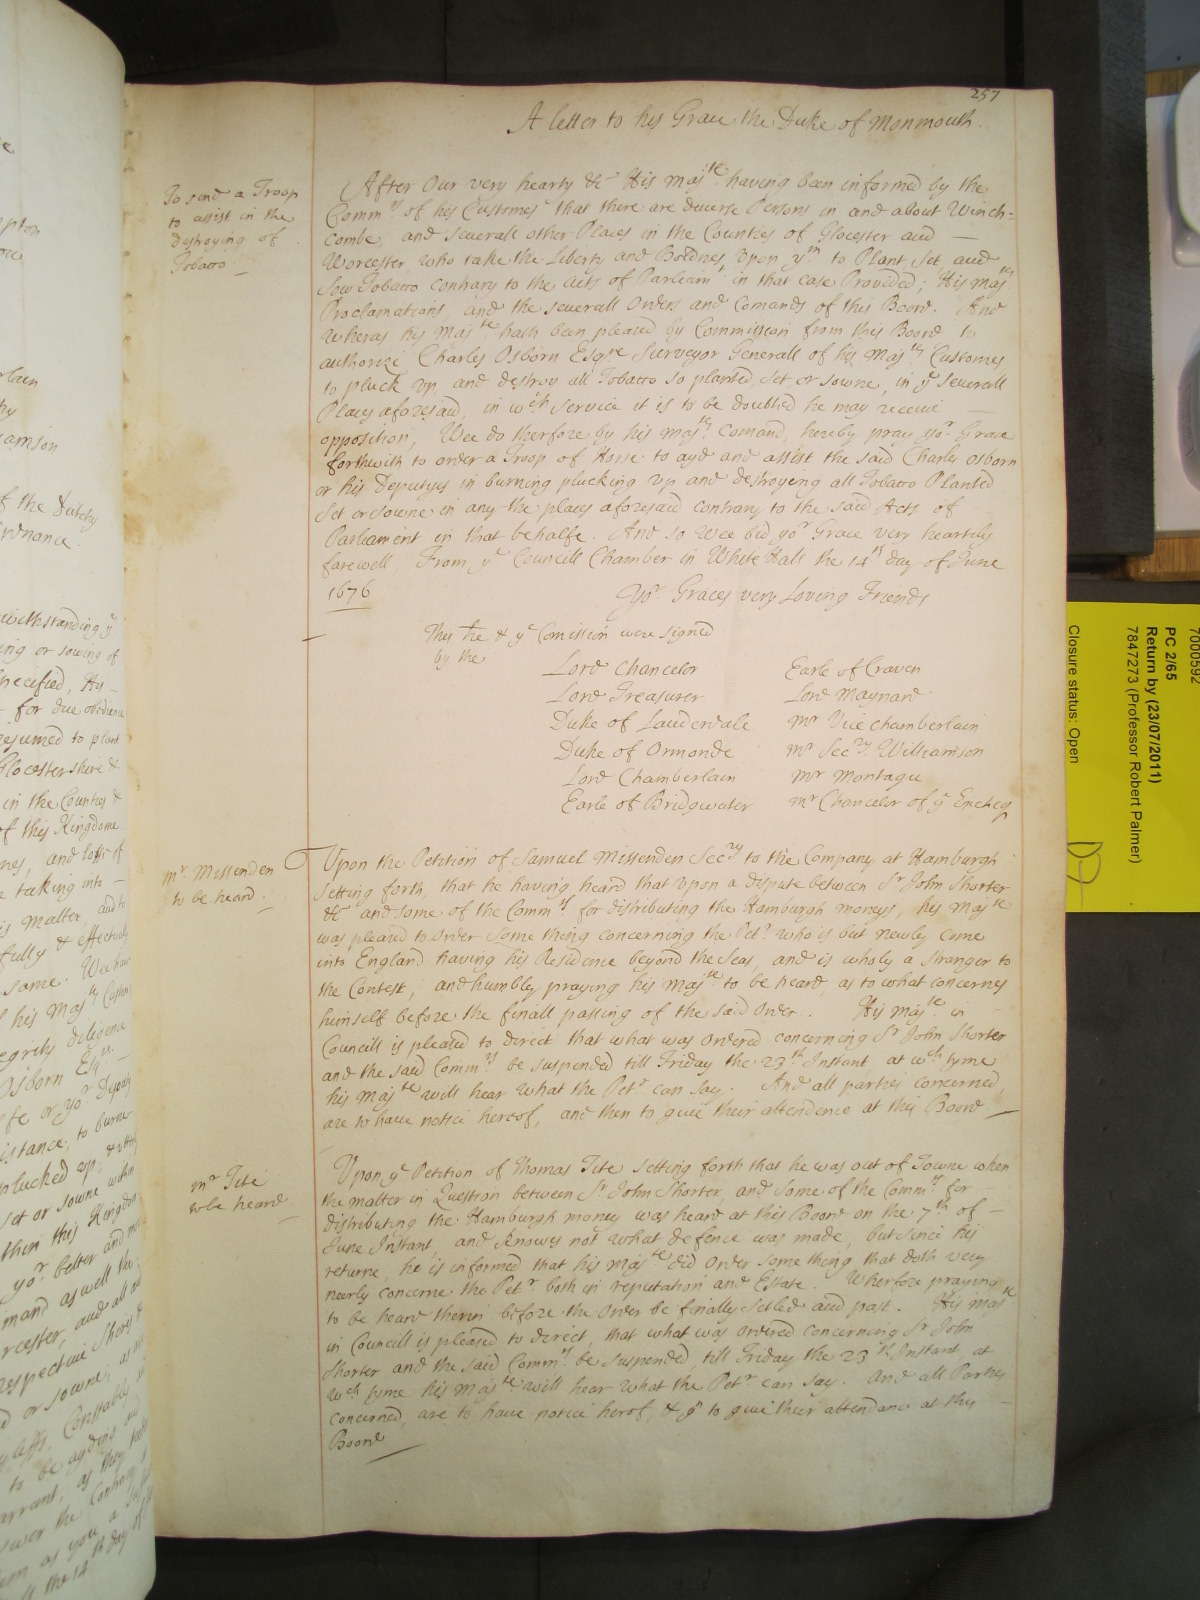 257
A letter to his Grace the Duke of Monmouth.
To send a Troop
to assist in the
destroying of
Tobacco
After Our very hearty &c His Maj^te having been informed by the
Comm^rs of his Customes that there are diverse Persons in and about Winch-
combe, and severall other Places in the Counties of Glocester and
Worcester who take the Liberty and Boldnes upon y^m to Plant set and
sow Tobacco contrary to the Acts of Parliam^t in that case Provided; His Maj^ts
Proclamations, and the severall Orders and Comands of this Board. And
Wheras his Maj^te hath been pleased by Commission from this Board to
authorize Charles Osborn Esq^re Surveyor Generall of his Maj^ts Customes
to pluck up and destroy all Tobacco so planted, set, or sowne, in y^e severall
Places aforesaid, in w^ch service it is to be doubted he may receive
opposition, Wee do therfore by his Maj^ts Comand, hereby pray yo^r Grace
forthwith to order a Troop of Horse to ayd and assist the said Charles Osborn
or his Deputyes in burning plucking up and destroyeng all Tobacco Planted
set or sowne in any the places aforesaid contrary to the said Acts of
Parliament in that behalfe. And so Wee bid yo^r Grace very heartily
farewell, From y^e Councill Chamber in White Hall the 14^th day of June
1676
Yo^r Graces very Loving Friends
This & y^e Comission were signed
by the
Lord Chancelor
Earle of Craven
Lord Treasurer
Lord Maynard
Duke of Lauderdale
M^r Vice Chamberlain
Duke of Ormonde
M^r Sec^ry Williamson
Lord Chamberlain
M^r Montagu
Earle of Bridgwater
M^r Chancelor of y^e Excheq
M^r. Missenden
to be heard
Upon the Petition of Samuel Missenden Sec^ry to the Company at Hamburgh
setting forth that he having heard that upon a dispute between S^r John Shorter
&c and some of the Comm^rs for distributing the Hamburgh moneys, his Maj^te
was pleased to order some thing concerning the Pet^r who is but newly come
into England having his Residence beyond the Seas, and is wholy a stranger to
the Contest, and humbly praying his Maj^te to be heard as to what concernes
himself before the finall passing of the said Order. His Maj^te in
Councill is pleased to direct that what was ordered concerning S^r John Shorter
and the said Comm^rs be suspended till Friday the 23^th Instant, at w^ch tyme
his Maj^te will hear what the Pet^r can say. And all parties concerned
are to have notice hereof, and then to give their attendence at this Board
M^r Tite
to be heard
Upon y^e Petition of Thomas Tite setting forth that he was out of Towne when
the matter in Question between S^r John Shorter, and some of the Comm^rs for
distributing the Hamburgh money was heard at this Board on the 7^th of
June Instant, and knowes not what defence was made, but since his
returne, he is informed that his Maj^te did order some thing that doth very
nearly concerne the Pet^r both in reputation and Estate. Wherfore praying
to be heard therin before the Order be finally setled and past. His Maj^te
in Councill is pleased to direct, that what was ordered concerning S^r John
Shorter and the said Comm^rs be suspended, till Friday the 23^th Instant, at
w^ch tyme his Maj^te will hear what the Pet^r can say. And all Parties
concerned, are to have notice herof, & y^n to give their attendance at this
Board
7000592
PC 2/65
Return by (23/07/2011)
7847273 (Professor Robert Palmer)
Closure status: Open